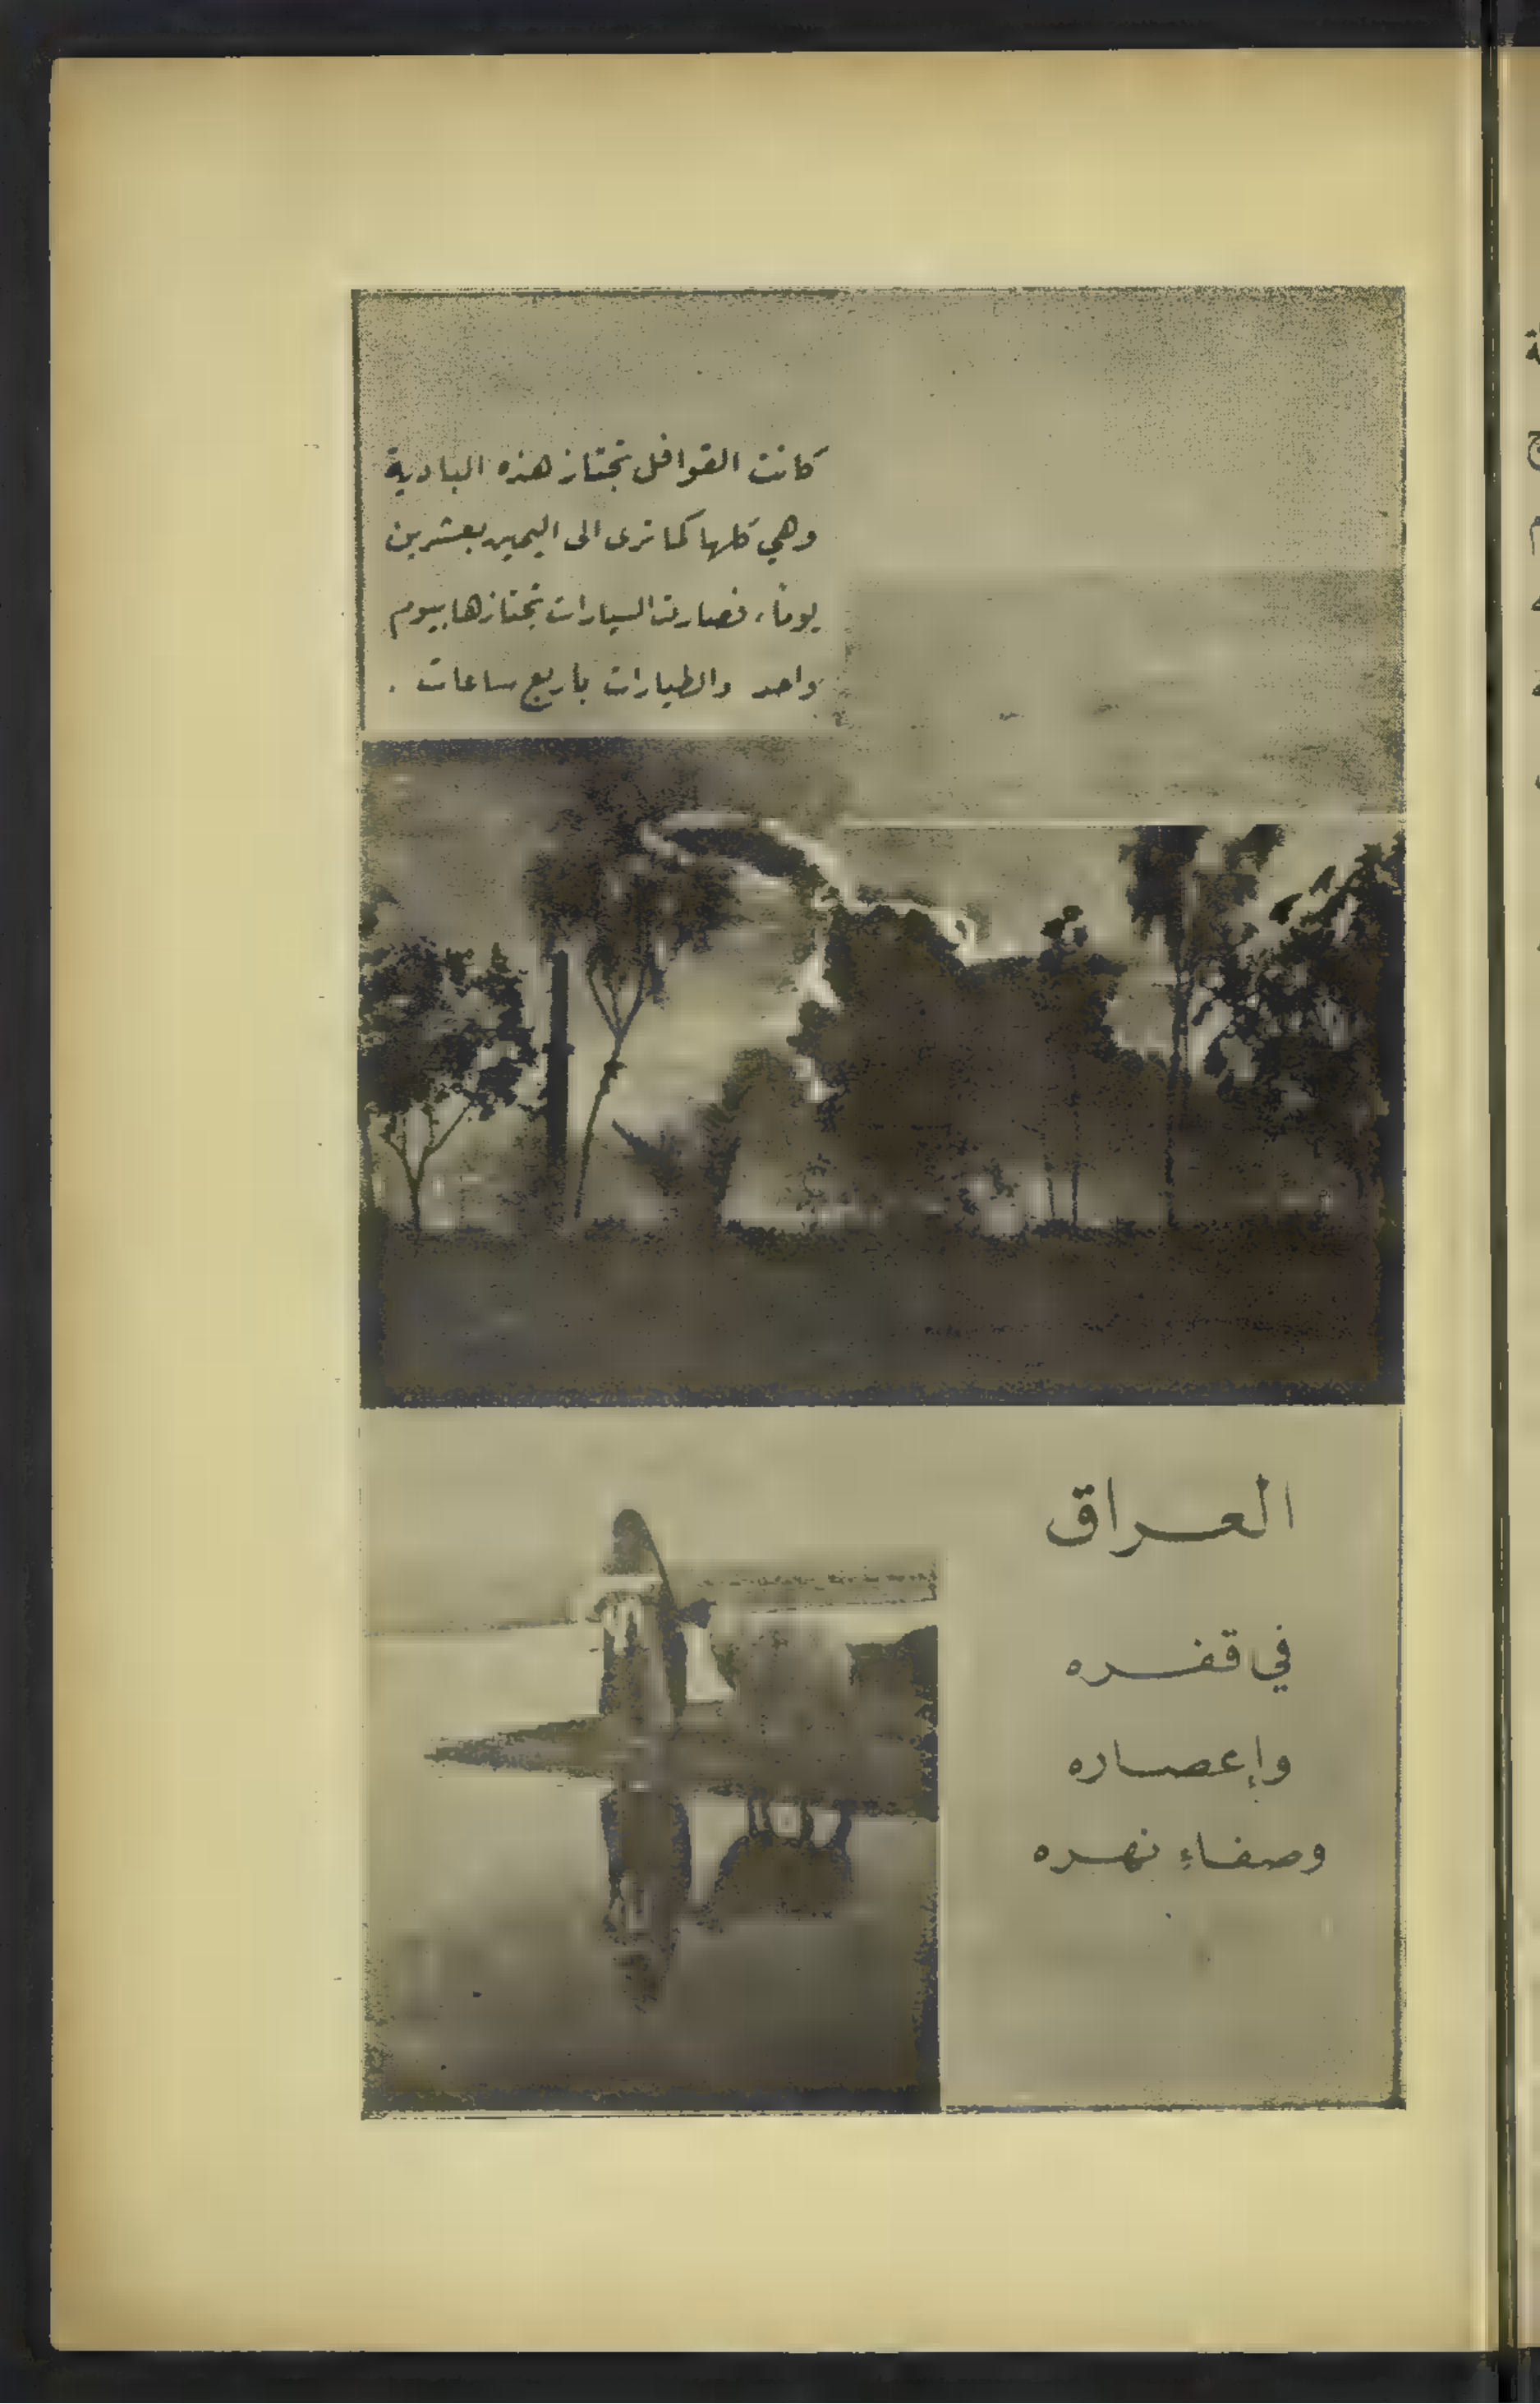 كانت القوافل تجتاز هذه البادية
وهي كلها كما ترى الى اليمين بعشرين
يوماً، فصارت السيارات تجتازها بيوم
واحد والطيارات باربع ساعات .
العراق
في قفره
وإعصاره
وصفاء نهره